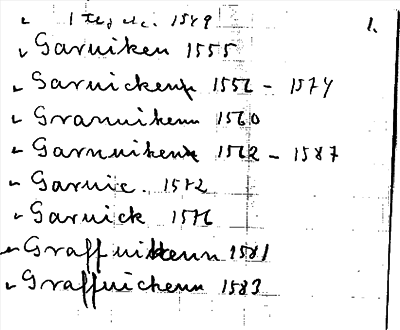 1549 1.
Garniken 1555
Garnickenn 1556 - 1574
Grannikenn 1560
Garnnikenn 1562 - 1587
Garnic. 1572
Garnick 1576
Graffnikenn 1581
Graffnickenn 1583